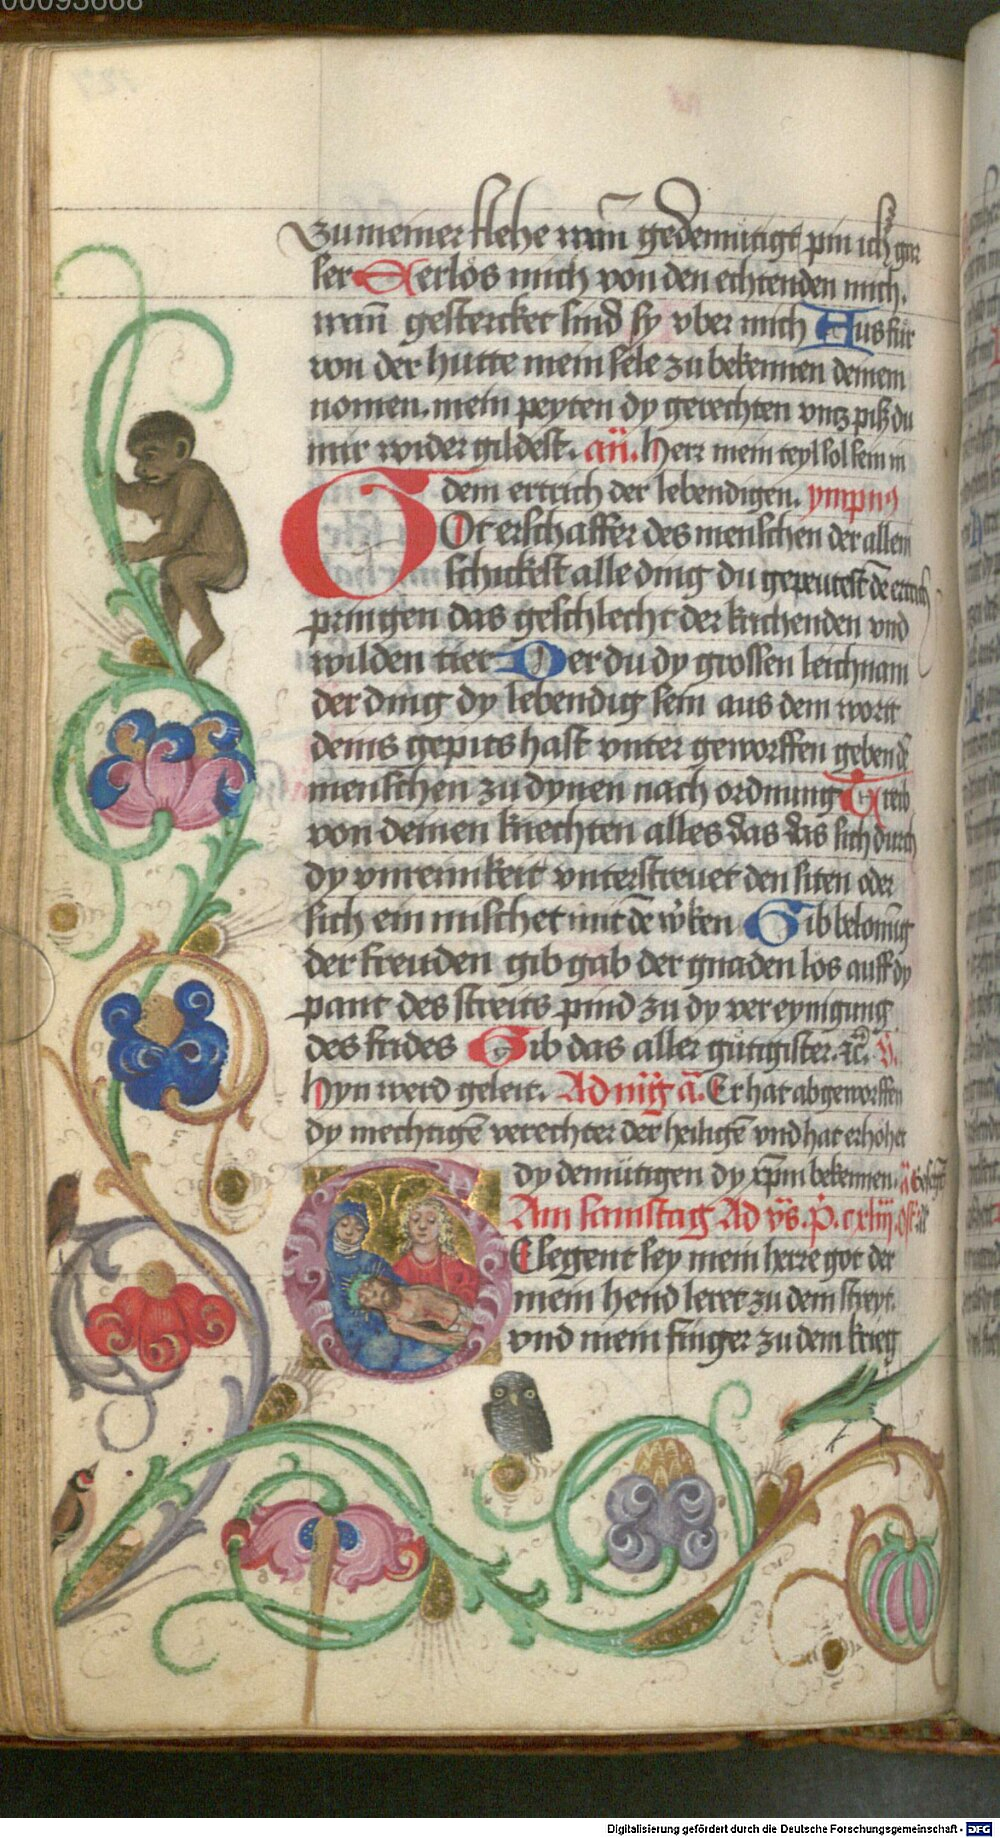 00093668
zu meiner flehe wan̄ gedemütigt pin ich gar
ser Aerlös mich von den echtenden mich.
wan̄ gestercket sind sy vber mich Aus für
von der hutte mein sele zu bekennen deinem
nomen. mein peyten dy gerechten vntz piß du
mir wider gildest. an̄. Herr mein teyl sol sein in
dem ertrich der lebendigen. ympnꝯ
GOt erschaffer des menschen der allein
schickest alle ding du gepeutest dē ertrich
pringen das geschlecht der krichenden vnd
wilden tier Der du dy grossen leichnam
der ding dy lebendig sein aus dem wortt
deins gepits hast vnter geworffen gebend
menschen zu dynen nach ordnung Treib
von deinen knechten alles das das sich durch
dy vnrennikeit vnterstreuet den siten oder
sich ein mischet mit dē wken Gib belonūg
der freuden gib gab der gnaden los auff dy
pant des streits pind zu dy vereynigung
des frides Gib das aller gütigister. ꝛc̄. V̇.
Hyn werd geleit. Ad mg̃t ā. Er hat abgeworffen
dy mechtigē verechter der heiligē vnd hat erhöhet
dy demütigen dy xp̄m bekennen.
Am samstag Ad vs̄. p̄. cxliij.
GEsegent sey mein herre got der
mein hend leret zu dem streyt.
vnd mein finger zu dem krieg
Digitalisierung gefördert durch die Deutsche Forschungsgemeinschaft - DFG